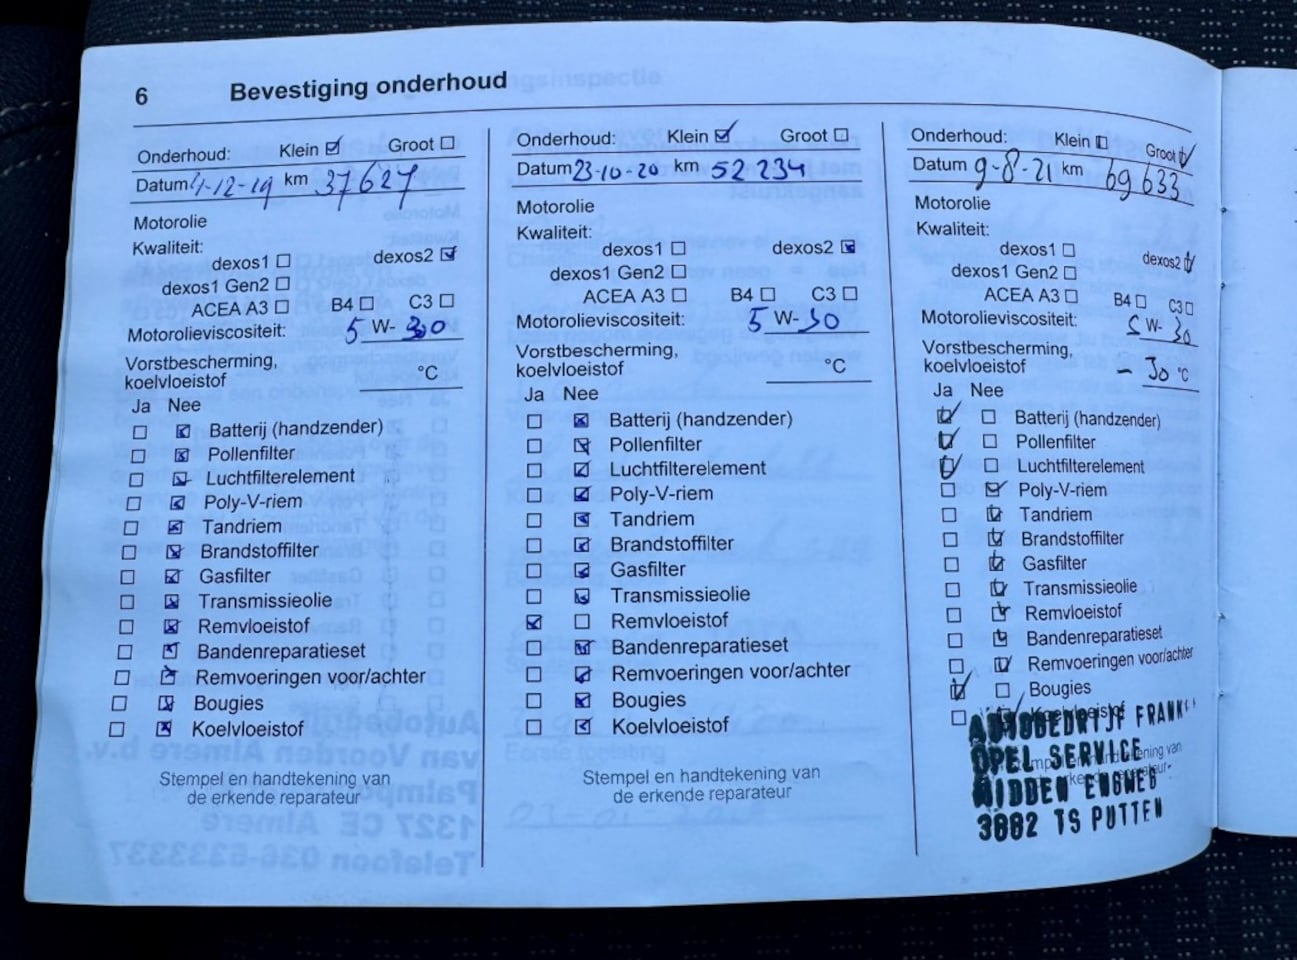 6 Bevestiging onderhoud
Onderhoud: Klein Groot
Datum 4-12-19 km 37627
Motorolie
Kwaliteit:
dexos1 dexos2
dexos1 Gen2
ACEA A3 B4 C3
Motorolieviscositeit: 5 W- 30
Vorstbescherming,
koelvloeistof °C
Ja Nee
Batterij (handzender)
Pollenfilter
Luchtfilterelement
Poly-V-riem
Tandriem
Brandstoffilter
Gasfilter
Transmissieolie
Remvloeistof
Bandenreparatieset
Remvoeringen voor/achter
Bougies
Koelvloeistof
Stempel en handtekening van
de erkende reparateur
Onderhoud: Klein Groot
Datum 23-10-20 km 52234
Motorolie
Kwaliteit:
dexos1 dexos2
dexos1 Gen2
ACEA A3 B4 C3
Motorolieviscositeit: 5 W- 30
Vorstbescherming,
koelvloeistof °C
Ja Nee
Batterij (handzender)
Pollenfilter
Luchtfilterelement
Poly-V-riem
Tandriem
Brandstoffilter
Gasfilter
Transmissieolie
Remvloeistof
Bandenreparatieset
Remvoeringen voor/achter
Bougies
Koelvloeistof
Stempel en handtekening van
de erkende reparateur
Onderhoud: Klein Groot
Datum 9-8-21 km 69633
Motorolie
Kwaliteit:
dexos1 dexos2
dexos1 Gen2
ACEA A3 B4 C3
Motorolieviscositeit: 5 W- 30
Vorstbescherming,
koelvloeistof - 30 °C
Ja Nee
Batterij (handzender)
Pollenfilter
Luchtfilterelement
Poly-V-riem
Tandriem
Brandstoffilter
Gasfilter
Transmissieolie
Remvloeistof
Bandenreparatieset
Remvoeringen voor/achter
Bougies
Koelvloeistof
AUTOBEDRIJF FRANK
OPEL SERVICE
MIDDEN ENGWEG
3882 TS PUTTEN